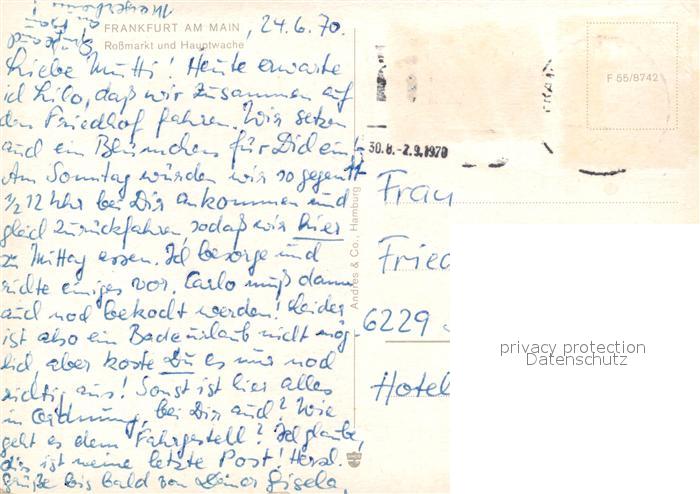 FRANKFURT AM MAIN
Roßmarkt und Hauptwache
, 24.6.70.
Liebe Mutti! Heute erwarte
ich Lilo, daß wir zusammen auf
den Friedhof fahren. Wir setzen
auch ein Blümchen für Dich ein!
Am Sonntag würden wir so gegen
1/2 12 Uhr bei Dir ankommen und
gleich zurückfahren, sodaß wir hier
zu Mittag essen. Ich besorge und
richte einiges vor. Carlo muß dann
auch noch bekocht werden! Leider
ist also ein Badeurlaub nicht mög-
lich, aber koste Du es nur noch
richtig aus! Sonst ist hier alles
in Ordnung, bei Dir auch? Wie
geht es dem Fahrgestell? Ich glaube,
dies ist meine letzte Post! Herzl.
Grüße bis bald von Deiner Gisela.
Andres & Co., Hamburg
F 55/8742
30.8.-2.9.1970
Frau
Fried
6229
Hotel
privacy protection
Datenschutz